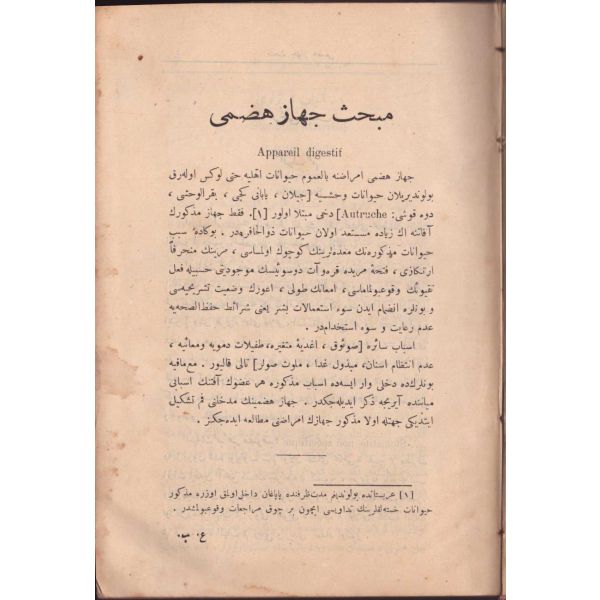 مبحث جهاز هضمی
Appareil digestif
جهاز هضمی امراضنه بالعموم حیوانات اهلیه حتی لوکس اوله‌رق
بولوندیریلان حیوانات وحشیه [جیلان ، یابانی کچی ، بقرالوحشی ،
دوه قوشی: Autruche] دخی مبتلا اولور [۱]. فقط جهاز مذکورک
آفاتنه اک زیاده مستعد اولان حیوانات ذوالحافردر . بوکاده سبب
حیوانات مذکوره‌نک معده‌لرینک کوچوک اولماسی ، مرینک منحرفاً
ارتکازی ، فتحهٔ مریده قره‌وآت دوسوئیسک موجودیتی حسبیله فعل
قیئونک وقوعبولماماسی ، امعانک طولی ، اعورک وضعیت تشریحیه‌سی
و بونلره انضمام ایدن سوء استعمالات بشر یعنی شرائط حفظ‌الصحه‌یه
عدم رعایت و سوء استخدامدر .
اسباب سائره [صوئوق ، اغدیهٔ متغیره ، طفیلات دمویه ومعائیه ،
عدم انتظام اسنان ، مبذول غدا ، ملوث صولر] تالی قالیور . مع‌مافیه
بونلرک‌ده دخلی وار ایسه‌ده اسباب مذکوره هر عضوک آفتنک اسبابی
میاننده آیریجه ذکر ایدیله‌جکدر . جهاز هضمینک مدخلنی فم تشکیل
ایتدیکی جهتله اولا مذکور جهازک امراضنی مطالعه ایده‌جکز .
[۱] عربستانده بولوندیغم مدت‌ظرفنده پاپاغان داخل‌اولمق اوزره مذکور
حیوانات خسته‌لقلرینک تداویسی ایچون بر چوق مراجعات وقوعبولمشدر .
ع . ب.